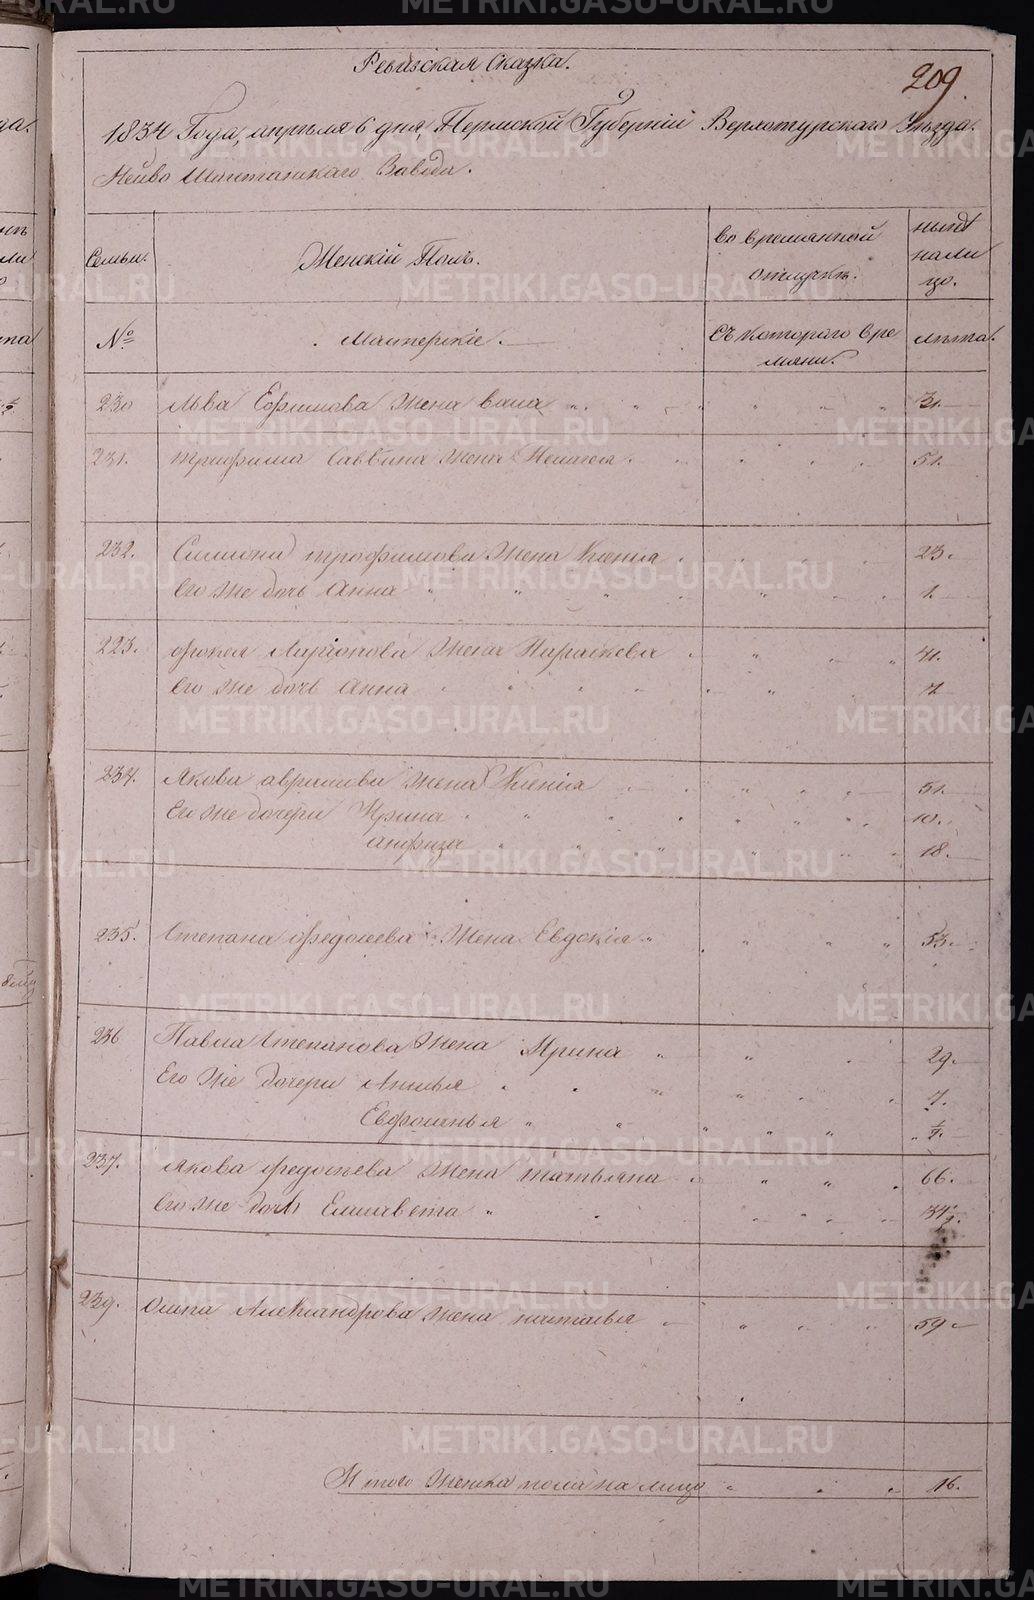 Ревизская Сказка.
209
1834 Года, апреля 6 дня, Пермской Губернiи Верхотурскаго Уезда.
Нейво Шайтанскаго Завода.
Семьи.
Женскiй Полъ.
во времянной
отлучке.
ныне
нали
цо.
№
Мастерскiе.
Съ котораго вре
мяни.
лета.
230 Льва Ефимова Жена 31.
231. трифима Саввина Жена Пелагея 51.
232. трофимова Жена Ксенья 23.
Его же дочь Анна 1.
223. фокея Ларiонова Жена Парасковья 41.
Его же дочь Анна
234. Якова аврамова Жена Ксенiя 51.
Его же дочери Ирина 10.
анфиза 18.
235. Степана федосеева Жена Евдокiя 53.
236 Павла Степанова Жена Ирина 29.
Его же дочери 7.
Евфросинья
237. якова федосеева Жена татьяна 66.
Его же дочь Елисавета
239. Осипа Александрова Жена наталья 59
И того женска пола на лицо 16.
METRIKI.GASO-URAL.RU